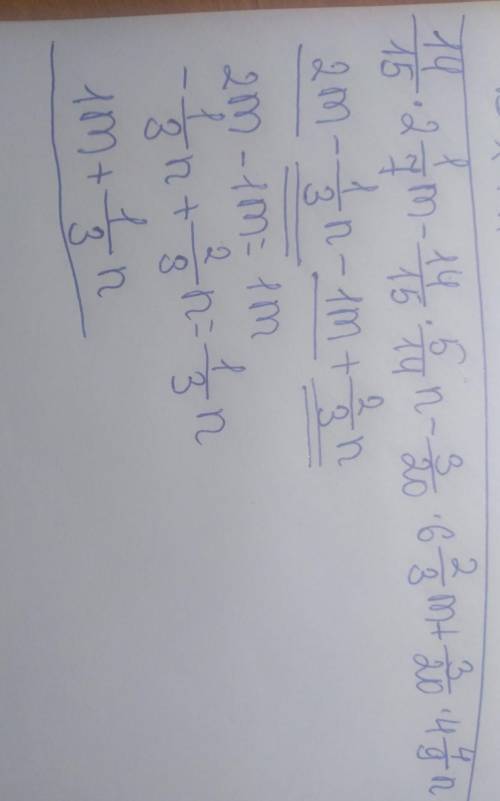 14/15 · 2 1/7 m - 14/15 · 5/14 n - 3/20 · 6 2/3 m + 3/20 · 4 4/9 n
2m - 1/3 n - 1m + 2/3 n
2m - 1m = 1m
- 1/3 n + 2/3 n = 1/3 n
1m + 1/3 n